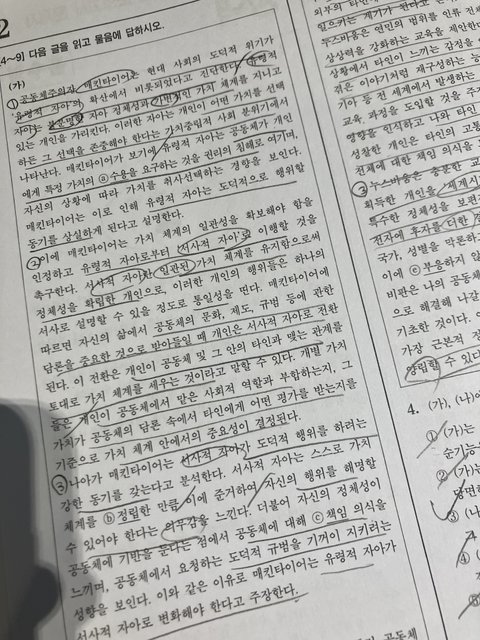 2
[4~9] 다음 글을 읽고 물음에 답하시오.
(가)
공동체주의자 매킨타이어는 현대 사회의 도덕적 위기가
'유령적 자아'의 확산에서 비롯되었다고 진단한다. 유령적
자아는 불분명한 자아 정체성과 가변적인 가치 체계를 지니고
있는 개인을 가리킨다. 이러한 자아는 개인이 어떤 가치를 선택
하든 그 선택을 존중해야 한다는 가치중립적 사회 분위기에서
나타난다. 매킨타이어가 보기에 유령적 자아는 공동체가 개인
에게 특정 가치의 ⓐ수용을 요구하는 것을 권리의 침해로 여기며,
자신의 상황에 따라 가치를 취사선택하는 경향을 보인다.
매킨타이어는 이로 인해 유령적 자아는 도덕적으로 행위할
동기를 상실하게 된다고 설명한다.
이에 매킨타이어는 가치 체계의 일관성을 확보해야 함을
인정하고 유령적 자아로부터 '서사적 자아'로 이행할 것을
촉구한다. 서사적 자아란 일관된 가치 체계를 유지함으로써
정체성을 확립한 개인으로, 이러한 개인의 행위들은 하나의
서사로 설명할 수 있을 정도로 통일성을 띤다. 매킨타이어에
따르면 자신의 삶에서 공동체의 문화, 제도, 규범 등에 관한
담론을 중요한 것으로 받아들일 때 개인은 서사적 자아로 전환
된다. 이 전환은 개인이 공동체 및 그 안의 타인과 맺는 관계를
토대로 가치 체계를 세우는 것이라고 말할 수 있다. 개별 가치
들은 개인이 공동체에서 맡은 사회적 역할과 부합하는지, 그
가치가 공동체의 담론 속에서 타인에게 어떤 평가를 받는지를
기준으로 가치 체계 안에서의 중요성이 결정된다.
나아가 매킨타이어는 서사적 자아가 도덕적 행위를 하려는
강한 동기를 갖는다고 분석한다. 서사적 자아는 스스로 가치
체계를 ⓑ정립한 만큼 이에 준거하여 자신의 행위를 해명할
수 있어야 한다는 의무감을 느낀다. 더불어 자신의 정체성이
공동체에 기반을 둔다는 점에서 공동체에 대해 ⓒ책임 의식을
느끼며, 공동체에서 요청하는 도덕적 규범을 기꺼이 지키려는
성향을 보인다. 이와 같은 이유로 매킨타이어는 유령적 자아가
서사적 자아로 변화해야 한다고 주장한다.
외부의 타인에
누스바움은 연민의 범위를 인류 전체
상상력을 강화하는 교육을 제안한다
상황에서 타인이 느끼는 감정을
겪은 이야기처럼 재구성하는 능
기아 등 전 세계에서 발생하는
교육 과정을 도입할 것을 주
영향을 인식하고 나와 타인
성찰한 개인은 타인의 고통
전체에 대해 책임 의식을
누스바움은 충분한 교
획득한 개인을
특수한 정체성을 보편
전자에 후자를 더한
국가, 성별을 막론하
이에 ⓔ부응하지 않
비판은 나의 공동체
으로 해결해 나갈
기초한 것이다.
가장 근본적
양립할 수 있다
4. (가), (나)에
① (가)는
순기능
② (가)는
당면
③ (나)
④
⑤